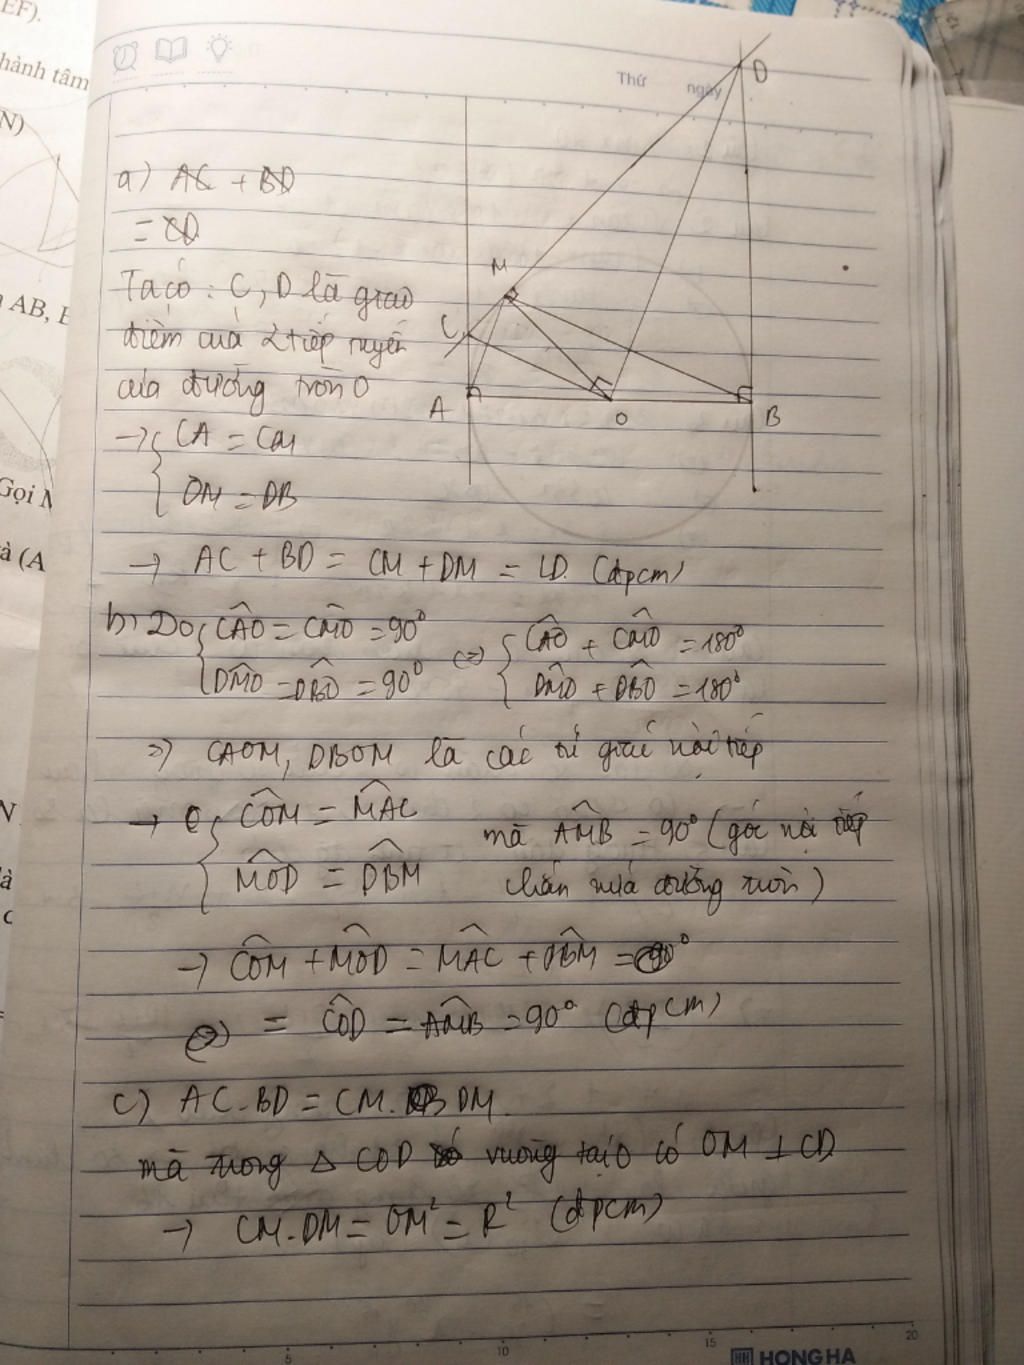 EF).
hành tâm
N)
AB, E
Gọi N
à (A
N
là
c
Thứ ngày
D
M
C
A
O
B
a) AC + BD
= CD
Ta có : C, D là giao
điểm của 2 tiếp tuyến
của đường tròn O
→ { CA = CM
DM = DB
→ AC + BD = CM + DM = CD. (đpcm)
b) Do { CAO = CMO = 90° <=> { CAO + CMO = 180°
DMO = DBO = 90° DMO + DBO = 180°
=> CAOM, DBOM là các tứ giác nội tiếp
→ { COM = MAC mà AMB = 90° (góc nội tiếp
MOD = DBM chắn nửa đường tròn)
→ COM + MOD = MAC + DBM = 90°
= COD = AMB = 90° (đpcm)
c) AC.BD = CM. DM.
mà trong △ COD vuông tại O có OM ⊥ CD
→ CM.DM = OM² = R² (đpcm)
5 10 15 20
HH HONG HA